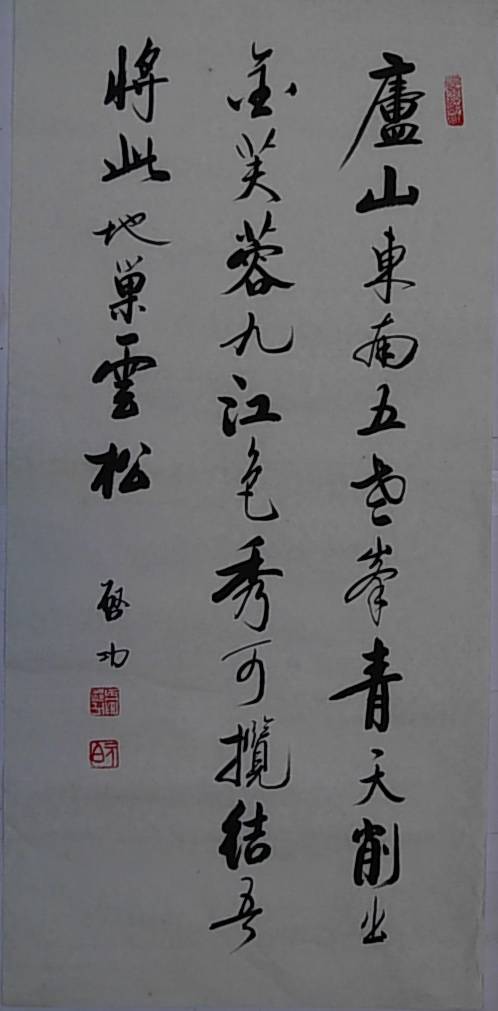 廬山東南五老峯青天削出
金芙蓉九江色秀可攬結吾
將此地巢雲松
啓功